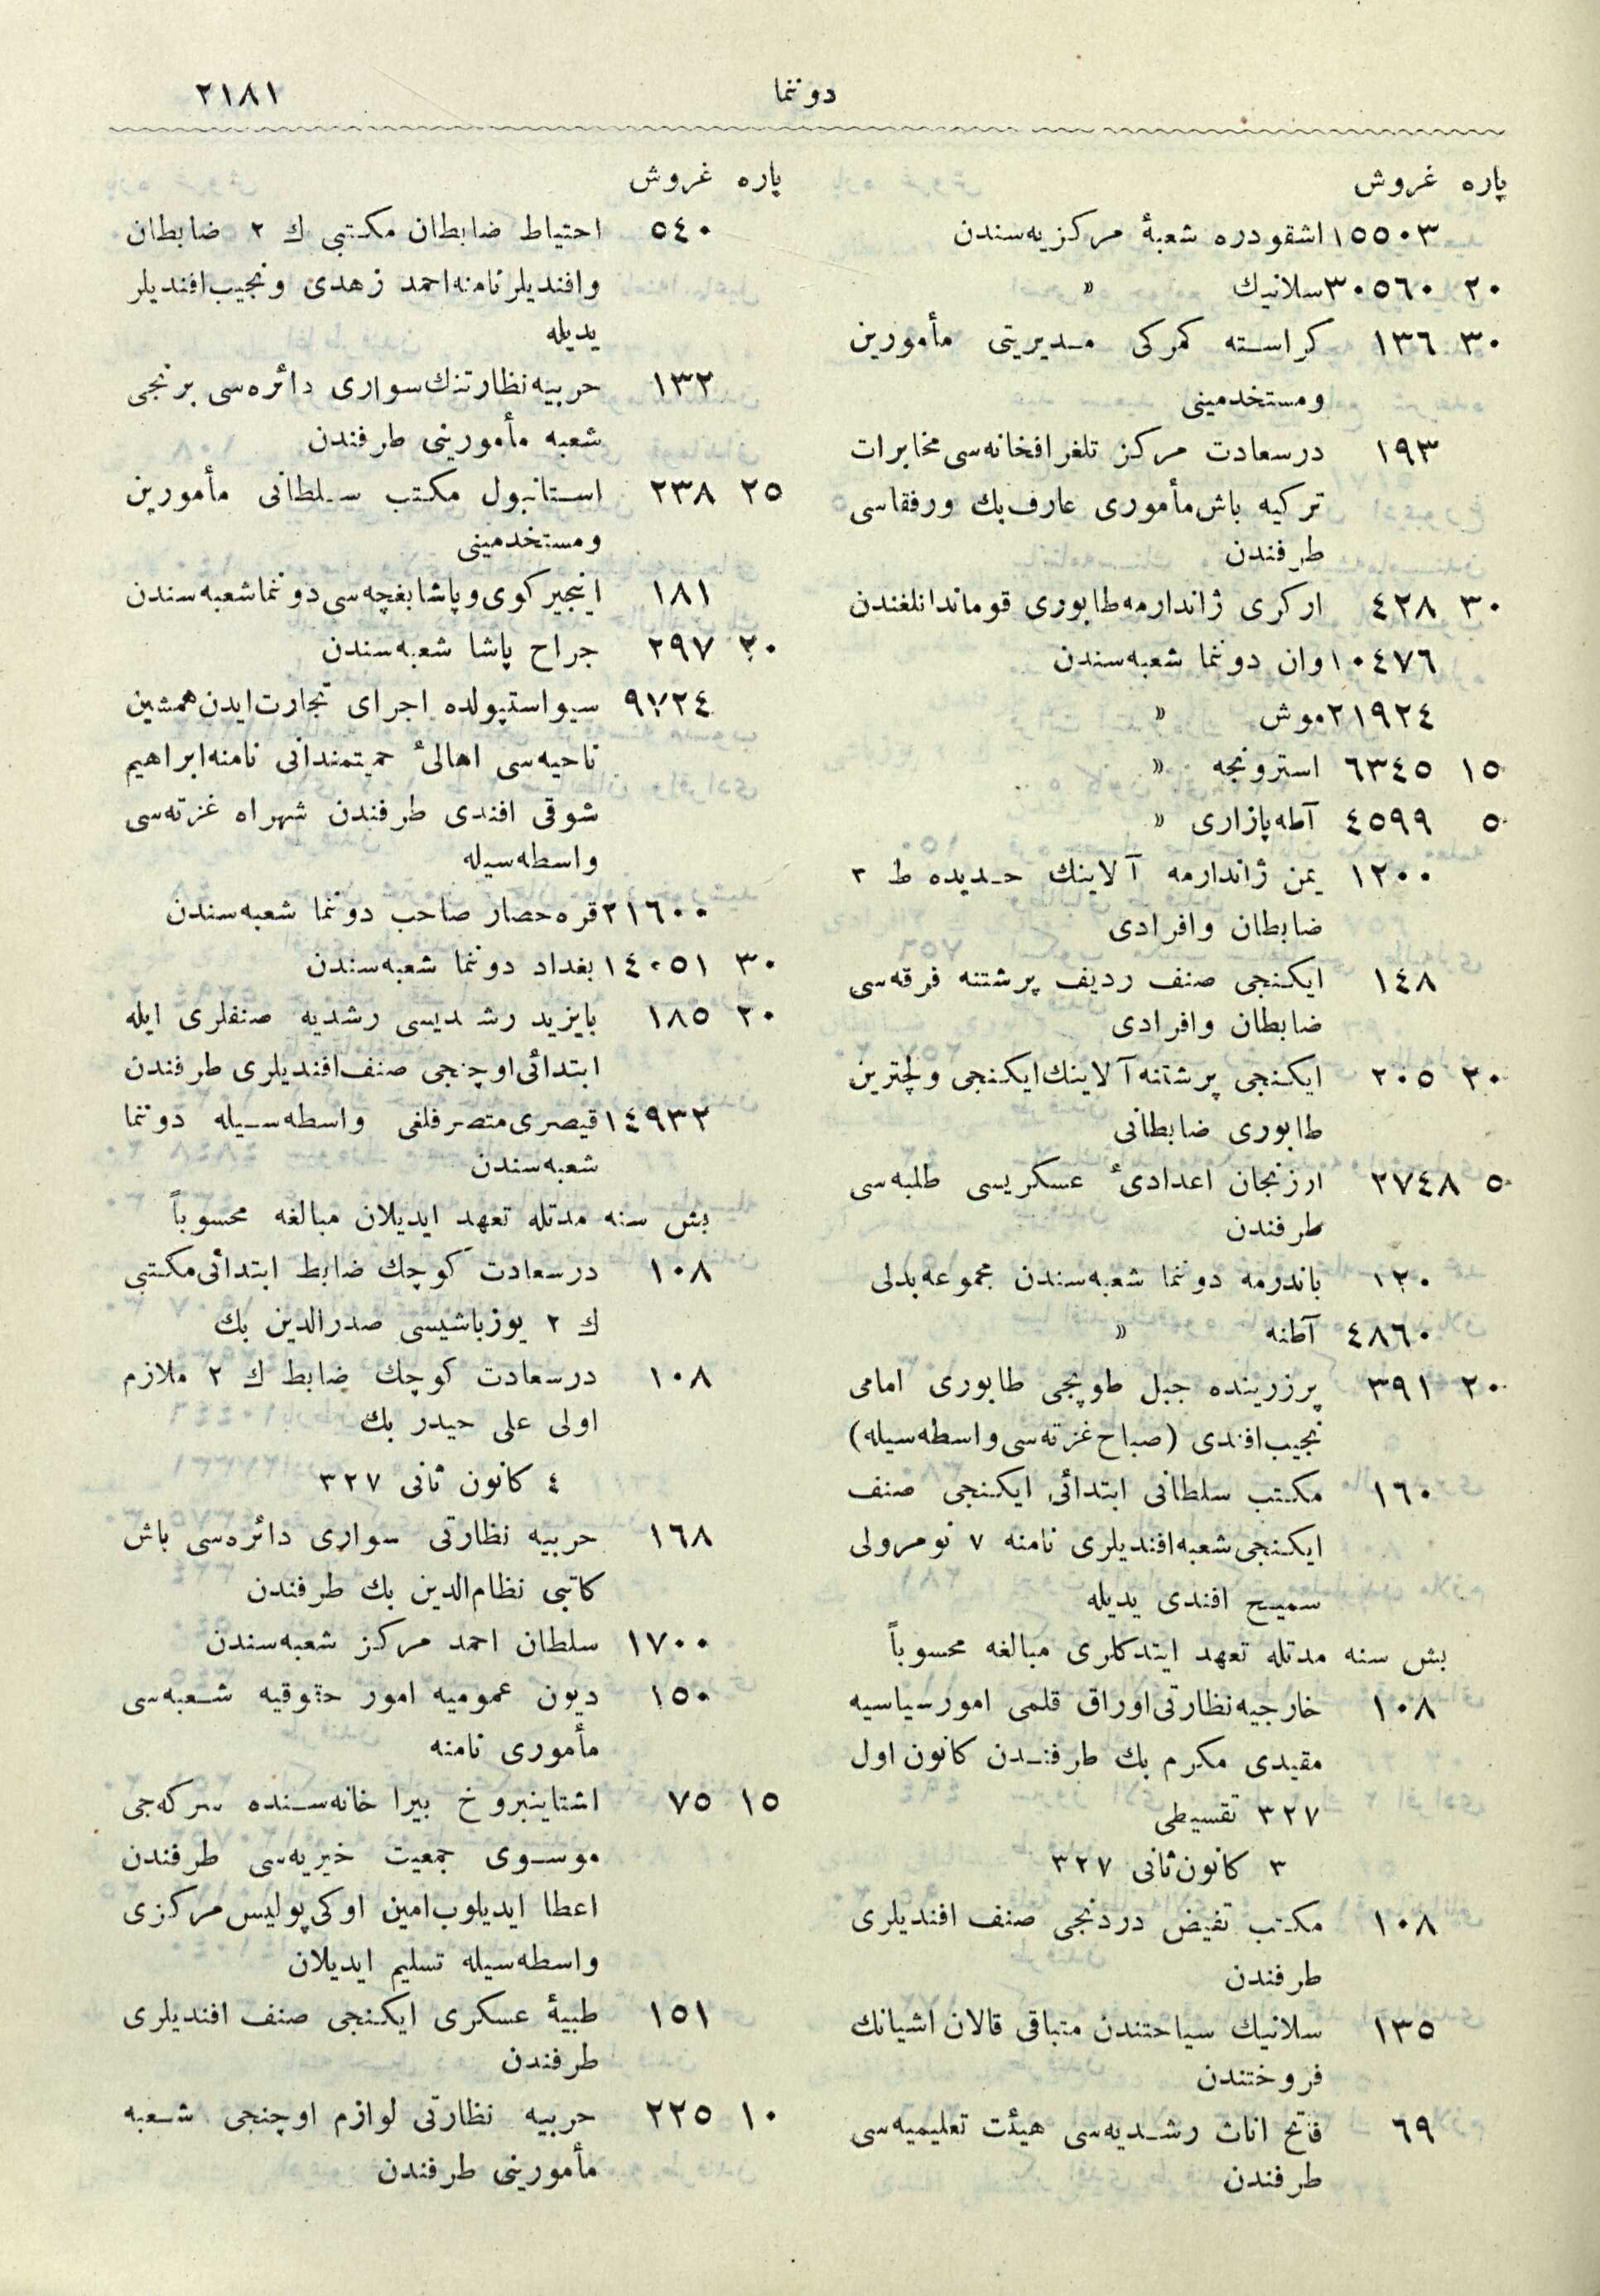 دوننما
٢١٨١
پاره غروش
١٥٥٠٣ اشقودره شعبۀ مركزیه‌سندن
٢٠ ٣٠٥٦٠ سلانیك »
٣٠ ١٣٦ كراسته كمركی مدیریتی مأمورین
ومستخدمینی
١٩٣ درسعادت مركز تلغرافخانه‌سی مخابرات
تركیه باش‌مأموری عارف‌بك ورفقاسی
طرفندن
٣٠ ٤٢٨ اركری ژاندارمه‌طابوری قوماندانلغندن
١٠٤٧٦ وان دوننما شعبه‌سندن
٢١٩٢٤ موش »
١٥ ٦٣٤٥ استرونجه »
٥ ٤٥٩٩ آطه‌پازاری »
١٢٠٠ یمن ژاندارمه آلاینك حدیده ط ٣
ضابطان وافرادی
١٤٨ ایكنجی صنف ردیف پرشتنه فرقه‌سی
ضابطان وافرادی
٢٠ ٢٠٥ ایكنجی پرشتنه‌آلاینك‌ایكنجی ولچترین
طابوری ضابطانی
٥ ٢٧٤٨ ارزنجان اعدادیٔ عسكریسی طلبه‌سی
طرفندن
١٢٠ باندرمه دوننما شعبه‌سندن مجموعه‌بدلی
٤٨٦٠ آطنه »
٢٠ ٣٩١ پرزرینده جبل طوپجی طابوری امامی
نجیب‌افندی (صباح‌غزته‌سی‌واسطه‌سیله)
١٦٠ مكتب سلطانی ابتدائی ایكنجی صنف
ایكنجی‌شعبه‌افندیلری نامنه ٧ نومرولی
سمیح افندی یدیله
بش سنه مدتله تعهد ایتدكلری مبالغه محسوباً
١٠٨ خارجیه‌نظارتی‌اوراق قلمی امورسیاسیه
مقیدی مكرم بك طرفندن كانون اول
٣٢٧ تقسیطی
٣ كانون‌ثانی ٣٢٧
١٠٨ مكتب تفیض دردنجی صنف افندیلری
طرفندن
١٣٥ سلانیك سیاحتندن متباقی قالان اشیانك
فروختندن
٦٩ فاتح اناث رشدیه‌سی هیئت تعلیمیه‌سی
طرفندن
پاره غروش
٥٤٠ احتیاط ضابطان مكتبی ك ٢ ضابطان
وافندیلرنامنه‌احمد زهدی ونجیب‌افندیلر
یدیله
١٣٢ حربیه‌نظارتنك‌سواری دائره‌سی برنجی
شعبه مأمورینی طرفندن
٢٥ ٢٣٨ استانبول مكتب سلطانی مأمورین
ومستخدمینی
١٨١ اینجیركوی‌وپاشابغچه‌سی‌دوننماشعبه‌سندن
٢٠ ٢٩٧ جراح پاشا شعبه‌سندن
٩٧٢٤ سیواستپولده اجرای تجارت‌ایدن‌همشین
ناحیه‌سی اهالیٔ حمیتمندانی نامنه‌ابراهیم
شوقی افندی طرفندن شهراه غزته‌سی
واسطه‌سیله
٢١٦٠٠ قره‌حصار صاحب دوننما شعبه‌سندن
٣٠ ١٤٠٥١ بغداد دوننما شعبه‌سندن
٢٠ ١٨٥ بایزید رشدیسی رشدیه صنفلری ایله
ابتدائی‌اوچنجی صنف‌افندیلری طرفندن
١٤٩٣٢ قیصری‌متصرفلغی واسطه‌سیله دوننما
شعبه‌سندن
بش سنه مدتله تعهد ایدیلان مبالغه محسوباً
١٠٨ درسعادت كوچك ضابط ابتدائی‌مكتبی
ك ٢ یوزباشیسی صدرالدین بك
١٠٨ درسعادت كوچك ضابط ك ٢ ملازم
اولی علی حیدر بك
٤ كانون ثانی ٣٢٧
١٦٨ حربیه نظارتی سواری دائره‌سی باش
كاتبی نظام‌الدین بك طرفندن
١٧٠٠ سلطان احمد مركز شعبه‌سندن
١٥٠ دیون عمومیه امور حقوقیه شعبه‌سی
مأموری نامنه
١٥ ٧٥ اشتاینبروخ بیرا خانه‌سنده سركه‌جی
موسوی جمعیت خیریه‌سی طرفندن
اعطا ایدیلوب‌امین اوكی‌پولیس‌مركزی
واسطه‌سیله تسلیم ایدیلان
١٥١ طبیۀ عسكری ایكنجی صنف افندیلری
طرفندن
١٠ ٢٢٥ حربیه نظارتی لوازم اوچنجی شعبه
مأمورینی طرفندن